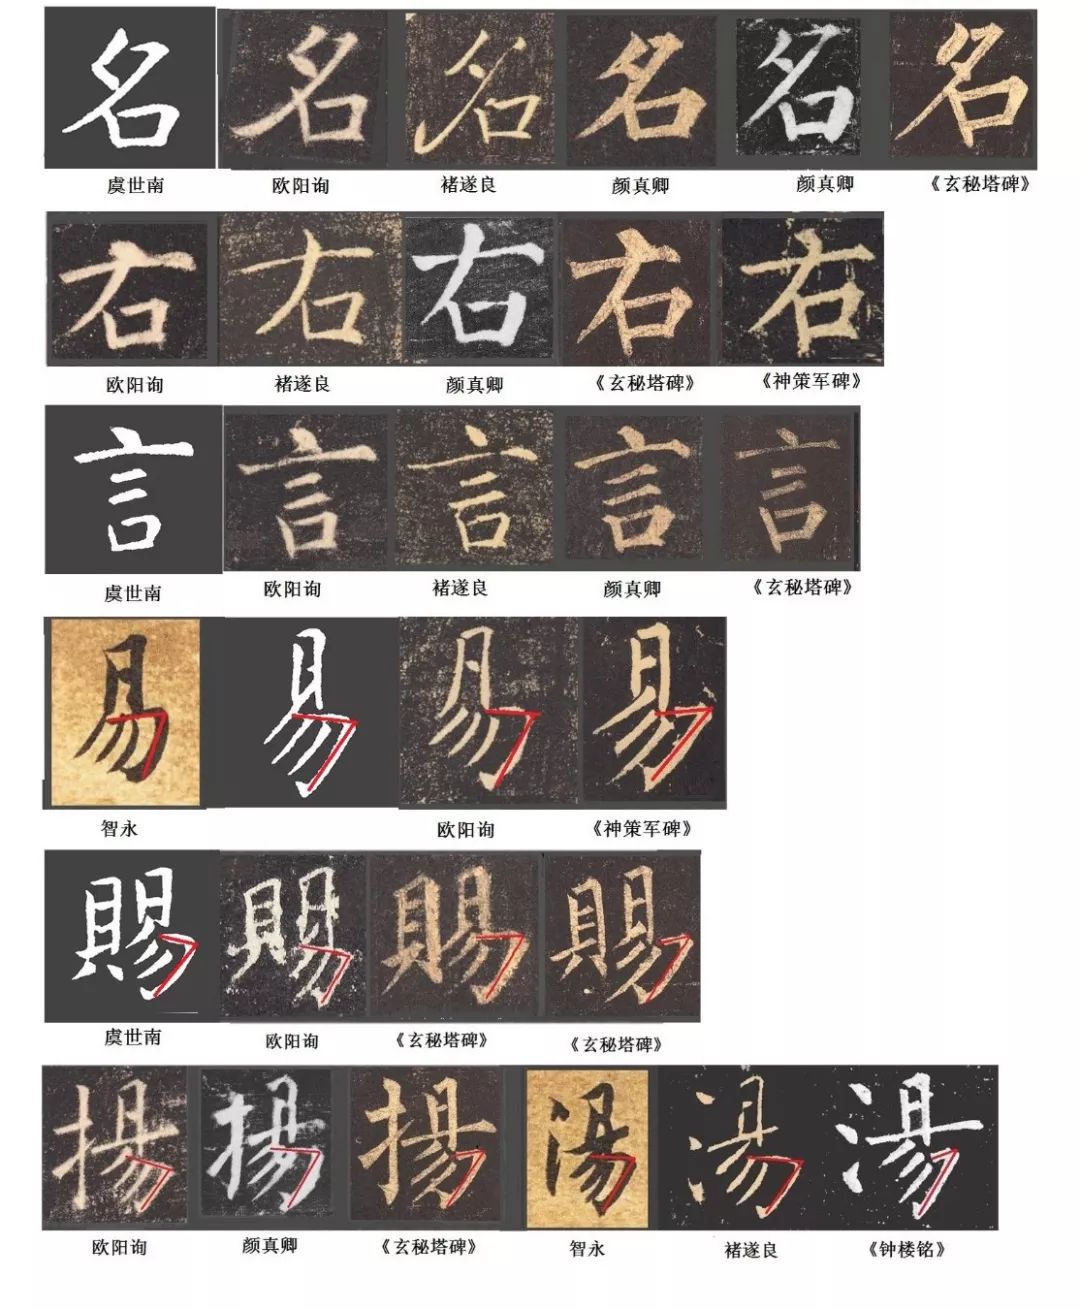 名 名 名 名 名 名
虞世南 欧阳询 褚遂良 颜真卿 颜真卿 《玄秘塔碑》
右 右 右 右 右
欧阳询 褚遂良 颜真卿 《玄秘塔碑》 《神策军碑》
言 言 言 言 言
虞世南 欧阳询 褚遂良 颜真卿 《玄秘塔碑》
易 易 易 易
智永 欧阳询 《神策军碑》
賜 賜 賜 賜
虞世南 欧阳询 《玄秘塔碑》 《玄秘塔碑》
揚 揚 揚 湯 湯 湯
欧阳询 颜真卿 《玄秘塔碑》 智永 褚遂良 《钟楼铭》